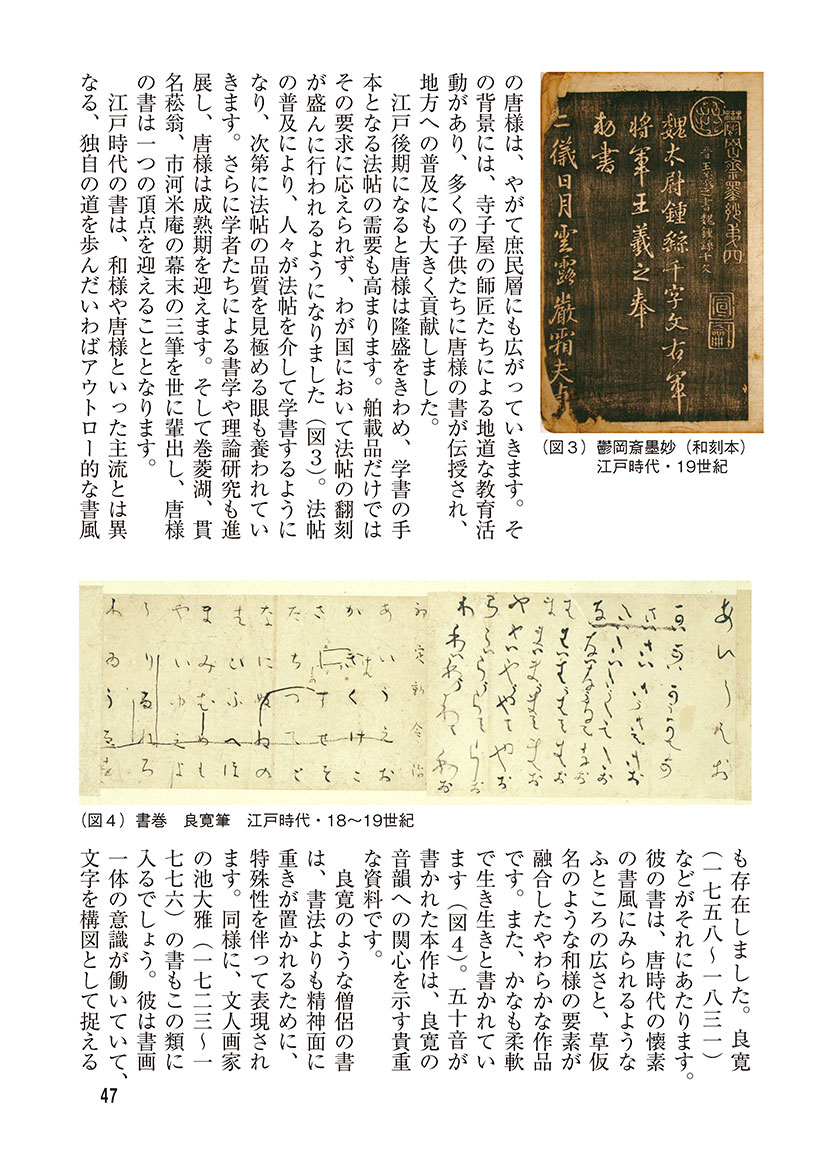 の唐様は、やがて庶民層にも広がっていきます。そ
の背景には、寺子屋の師匠たちによる地道な教育活
動があり、多くの子供たちに唐様の書が伝授され、
地方への普及にも大きく貢献しました。
江戸後期になると唐様は隆盛をきわめ、学書の手
本となる法帖の需要も高まります。舶載品だけでは
その要求に応えられず、わが国において法帖の翻刻
が盛んに行われるようになりました（図３）。法帖
の普及により、人々が法帖を介して学書するように
なり、次第に法帖の品質を見極める眼も養われてい
きます。さらに学者たちによる書学や理論研究も進
展し、唐様は成熟期を迎えます。そして巻菱湖、貫
名菘翁、市河米庵の幕末の三筆を世に輩出し、唐様
の書は一つの頂点を迎えることとなります。
江戸時代の書は、和様や唐様といった主流とは異
なる、独自の道を歩んだいわばアウトロー的な書風
魏太尉鍾繇千字文右軍
将軍王羲之奉
勅書
二儀日月雲露嚴霜夫貞
（図３）鬱岡斎墨妙（和刻本）
江戸時代・19世紀
あいうえお
かきくけこ
さしすせそ
たちつてと
なにぬねの
はひふへほ
まみむめも
やいゆえよ
らりるれろ
わゐうゑを
（図４）書巻　良寛筆　江戸時代・18〜19世紀
も存在しました。良寛
（一七五八〜一八三一）
などがそれにあたります。
彼の書は、唐時代の懐素
の書風にみられるような
ふところの広さと、草仮
名のような和様の要素が
融合したやわらかな作品
です。また、かなも柔軟
で生き生きと書かれてい
ます（図４）。五十音が
書かれた本作は、良寛の
音韻への関心を示す貴重
な資料です。
良寛のような僧侶の書
は、書法よりも精神面に
重きが置かれるために、
特殊性を伴って表現され
ます。同様に、文人画家
の池大雅（一七二三〜一
七七六）の書もこの類に
入るでしょう。彼は書画
一体の意識が働いていて、
文字を構図として捉える
47